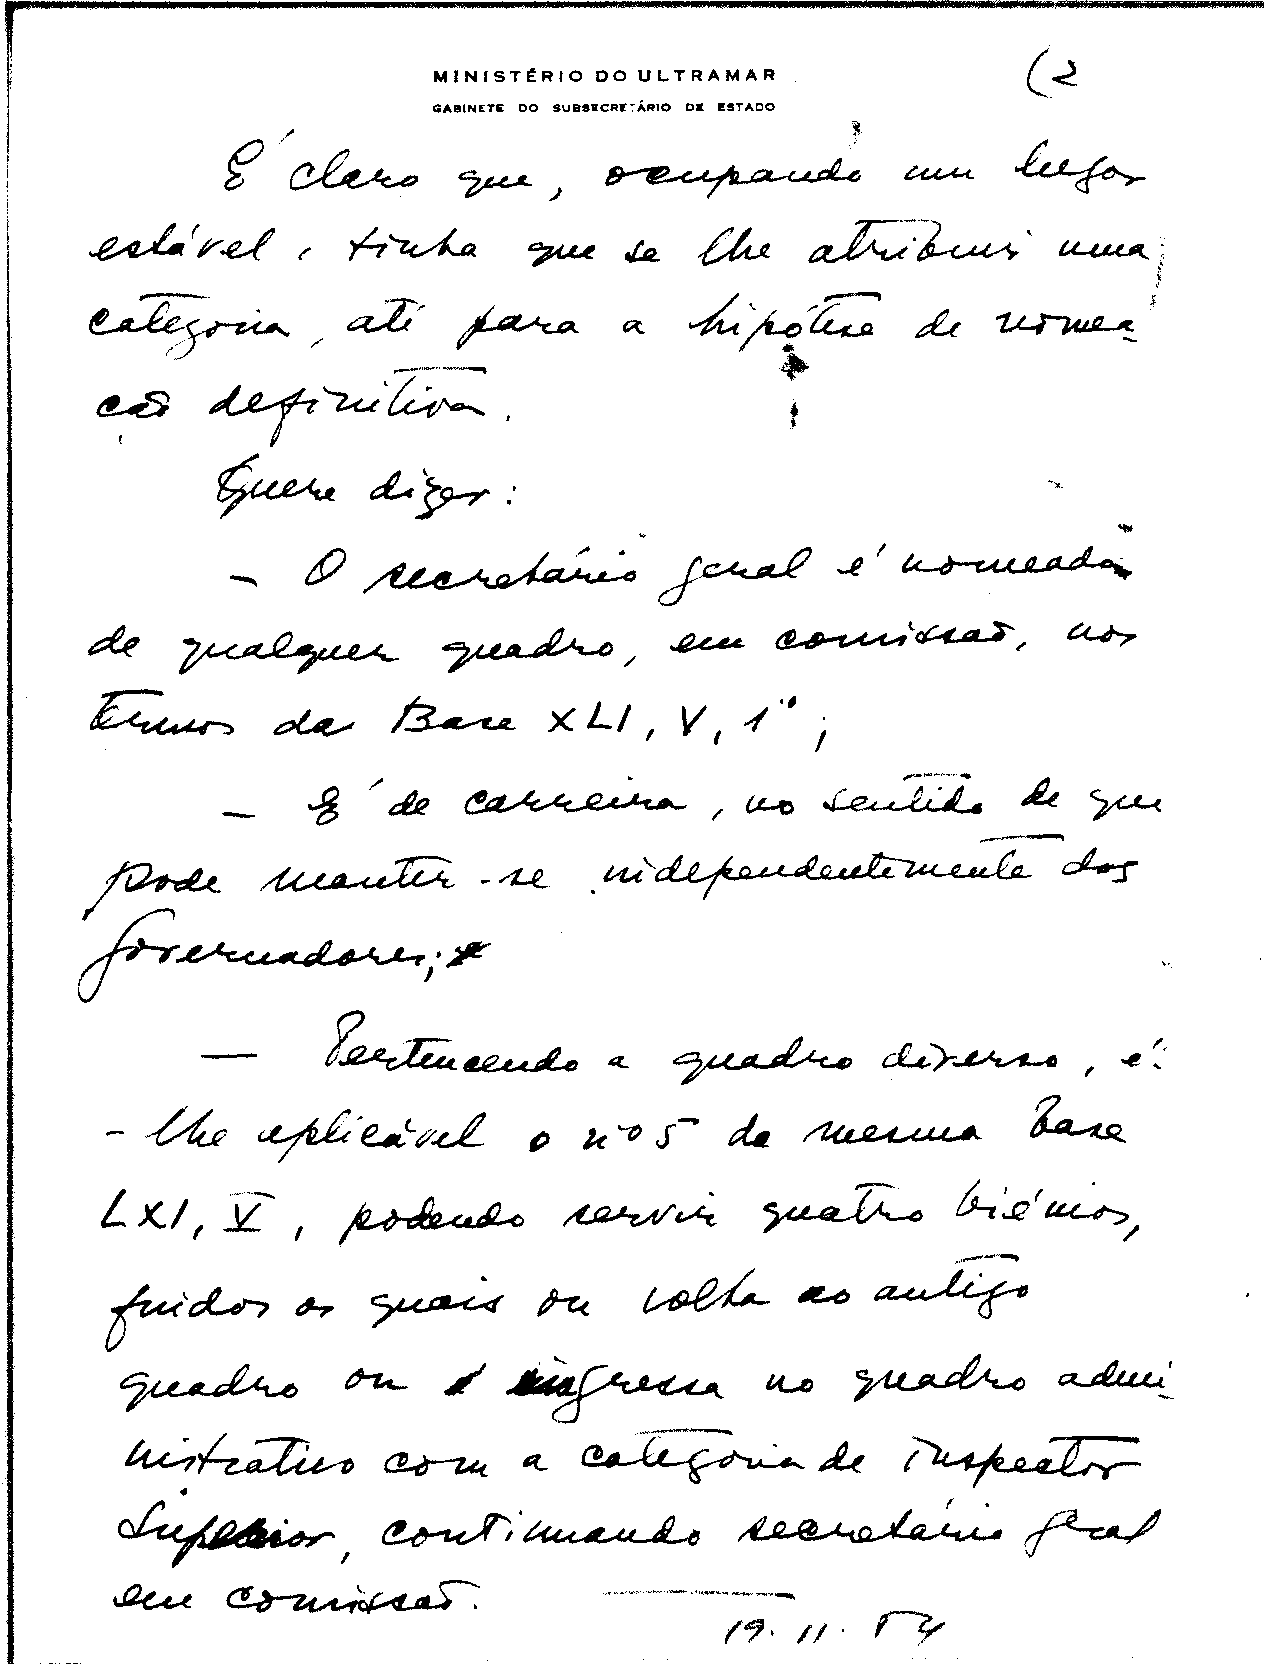 MINISTÉRIO DO ULTRAMAR
GABINETE DO SUBSECRETÁRIO DE ESTADO
(2
É claro que, ocupando um lugar
estável, tinha que se lhe atribuir uma
categoria, até para a hipótese de nomea-
ção definitiva.
Quere dizer:
- O secretário geral é nomeado
de qualquer quadro, em comissão, nos
termos da Base XLI, V, 1º;
- É de carreira, no sentido de que
pode manter-se independentemente dos
governadores;
- Pertencendo a quadro diverso, é-
-lhe aplicável o nº 5 da mesma Base
LXI, V, podendo servir quatro biénios,
findos os quais ou volta ao antigo
quadro ou ingressa no quadro admi-
nistrativo com a categoria de Inspector
Superior, continuando secretário geral
em comissão.
19.11.54